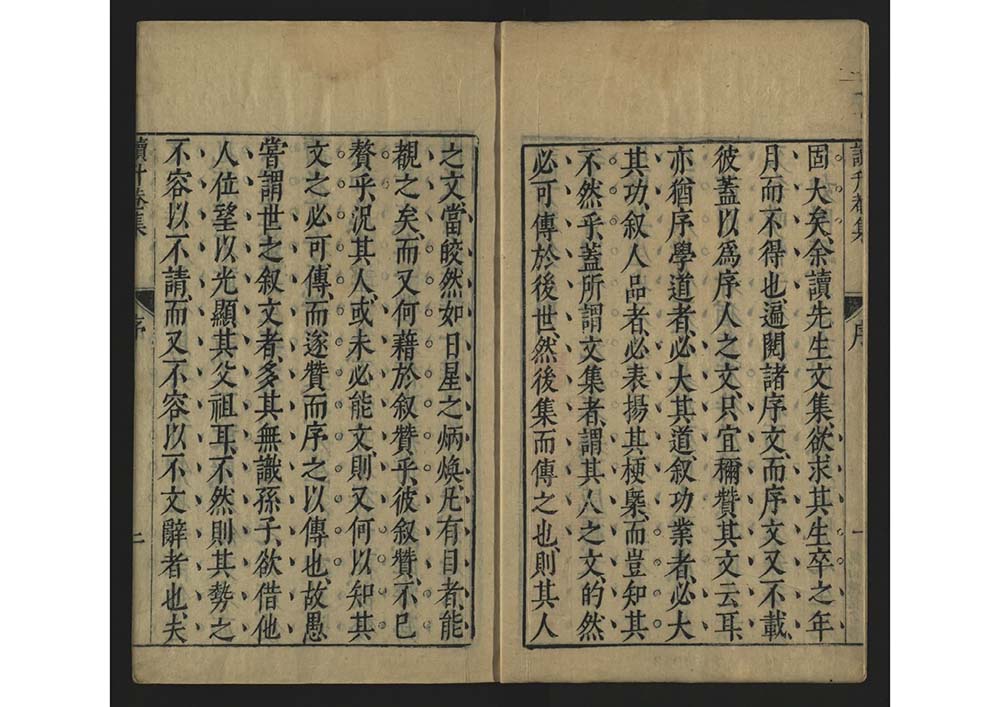 讀升菴集
序
一
固大矣、余讀先生文集、欲求其生卒之年
月而不得也、遍閱諸序文、而序文又不載、
彼蓋以爲序人之文、只宜稱贊其文云耳、
亦猶序學道者、必大其道、叙功業者、必大
其功、叙人品者、必表揚其梗槩、而豈知其
不然乎、蓋所謂文集者、謂其人之文、的然
必可傳於後世、然後集而傳之也、則其人
之文、當皎然如日星之炳煥、凡有目者、能
覩之矣、而又何藉於叙贊乎、彼叙贊、不已
贅乎、況其人、或未必能文、則又何以知其
文之必可傳、而遂贊而序之以傳也、故愚
嘗謂世之叙文者、多其無識孫子、欲借他
人位望、以光顯其父祖耳、不然則其勢之
不容以不請、而又不容以不文辭者也、夫
讀升菴集
序
二